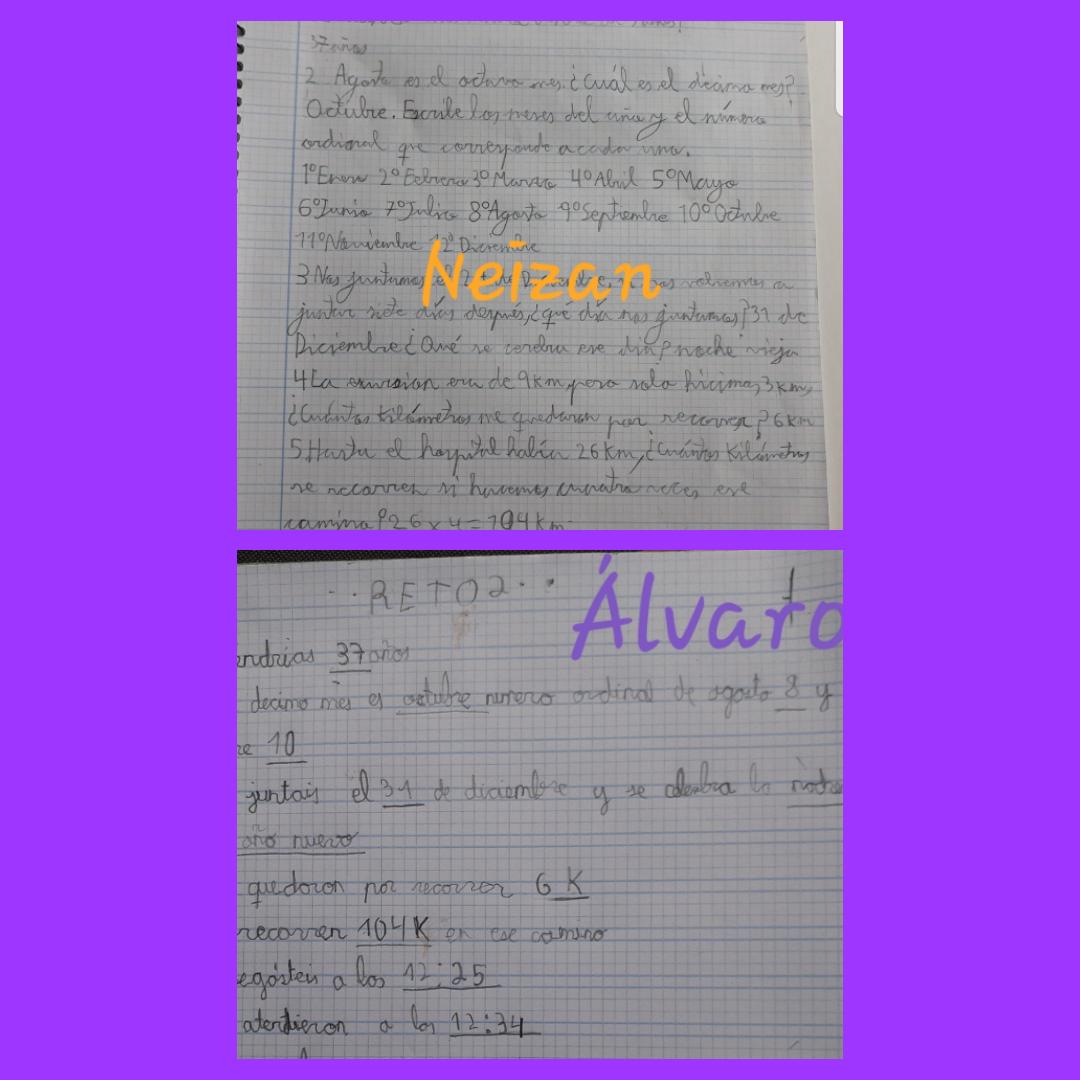 37 años
2 Agosto es el octavo mes ¿Cuál es el décimo mes?
Octubre. Escribe los meses del año y el número
ordional que corresponde a cada uno.
1º Enero 2º Febrero 3º Marzo 4º Abril 5º Mayo
6º Junio 7º Julio 8º Agosto 9º Septiembre 10º Octubre
11º Noviembre 12º Diciembre
Neizan
3 Nos juntamos el de volvemos a
juntar siete días después, ¿qué día nos juntamos? 31 de
Diciembre ¿Qué se cerebra ese día? noche vieja
4 La excursion era de 9 km, pero solo hicimos 3 km,
¿Cuántos kilómetros me quedaron por recorrer? 6 km
5. Hasta el hospital había 26 Km, ¿Cuántos Kilómetros
se recorren si hacemos cuuatro veces ese
camino? 26 x 4 = 104 km.
··RETO2··
Álvaro
endrias 37 años
decimo mes es octubre numero ordinal de agosto 8 y
re 10
juntais el 31 de diciembre y se celebra la
año nuevo
quedaron por recorrer 6 K
recorren 104 K en ese camino
egásteis a las 12:25
atendieron a las 12:34